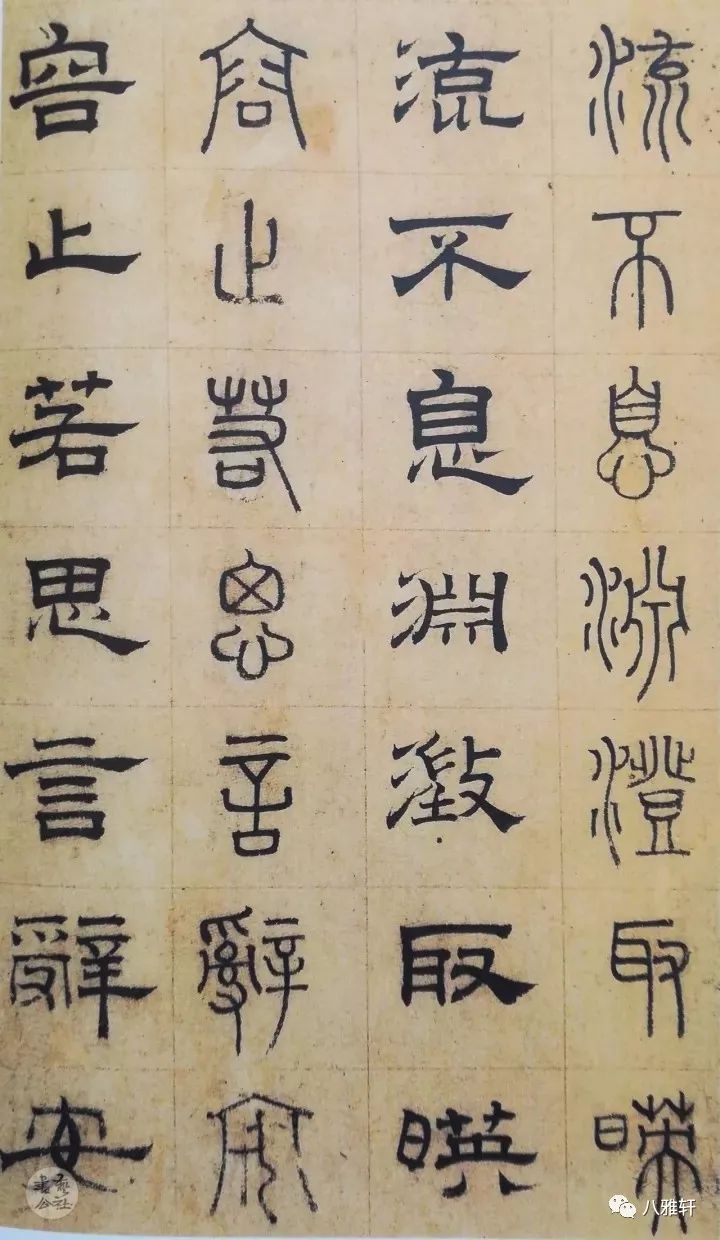 流不息淵澄取暎
流不息淵澂取暎
容止若思言辭安
容止若思言辭安
八雅轩